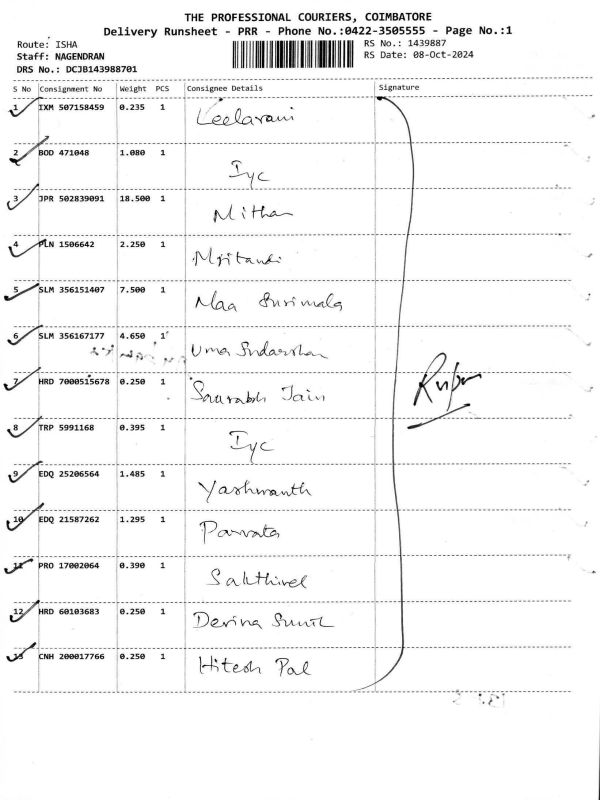 THE PROFESSIONAL COURIERS, COIMBATORE
Delivery Runsheet - PRR - Phone No.:0422-3505555 - Page No.:1
Route: ISHA
RS No.: 1439887
Staff: NAGENDRAN
RS Date: 08-Oct-2024
DRS No.: DCJB143988701
S No Consignment No Weight PCS Consignee Details Signature
1 IXM 507158459 0.235 1 Leelarani
2 BOD 471048 1.080 1 Iyc
3 JPR 502839091 18.500 1 Mithan
4 PLN 1506642 2.250 1
5 SLM 356151407 7.500 1 Maa Surimala
6 SLM 356167177 4.650 1 Uma Sudarshan
7 HRD 7000515678 0.250 1 Saurabh Jain
8 TRP 5991168 0.395 1 Iyc
9 EDQ 25206564 1.485 1 Yashwanth
10 EDQ 21587262 1.295 1 Parvata
11 PRO 17002064 0.390 1 Sakthivel
12 HRD 60103683 0.250 1 Devina Sunil
13 CNH 200017766 0.250 1 Hitesh Pal